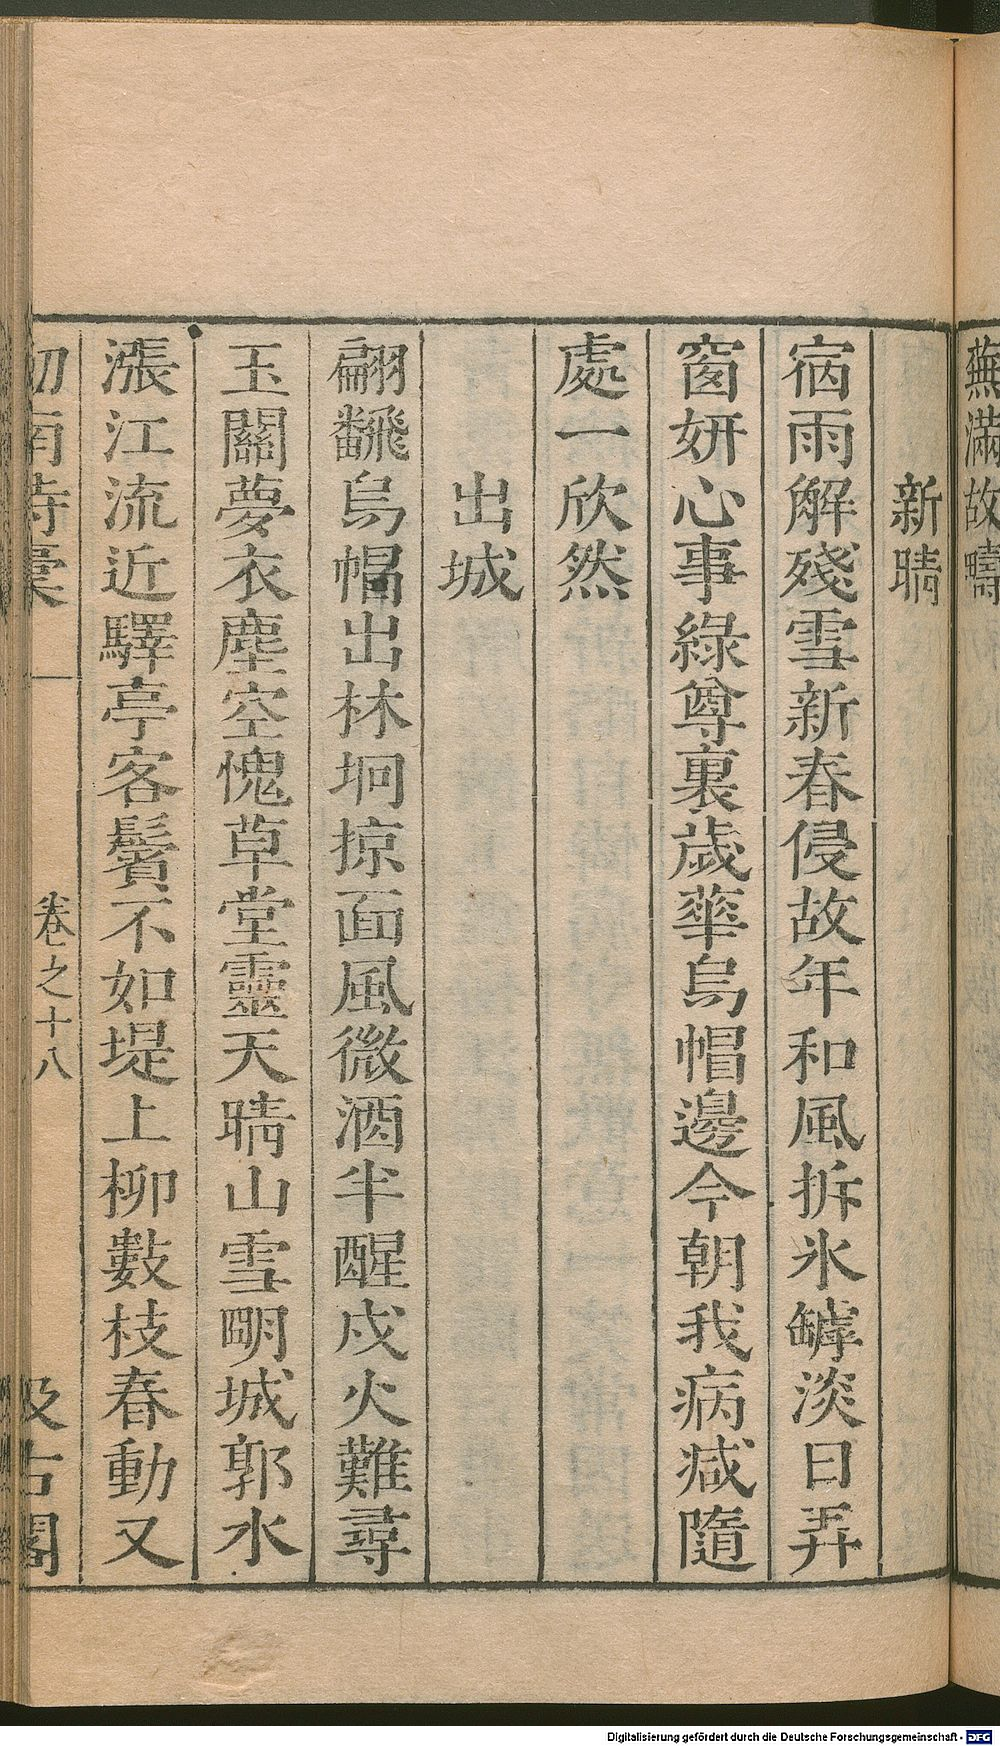 蕪滿故疇
新晴
宿雨解殘雪新春侵故年和風拆氷罅淡日弄
窗妍心事綠尊裏歲華烏帽邊今朝我病減隨
處一欣然
出城
翩翻烏帽出林坰掠面風微酒半醒戍火難尋
玉關夢衣塵空愧草堂靈天晴山雪明城郭水
漲江流近驛亭客鬢不如堤上柳數枝春動又
劒南詩稾
卷之十八
汲古閣
Digitalisierung gefördert durch die Deutsche Forschungsgemeinschaft - DFG